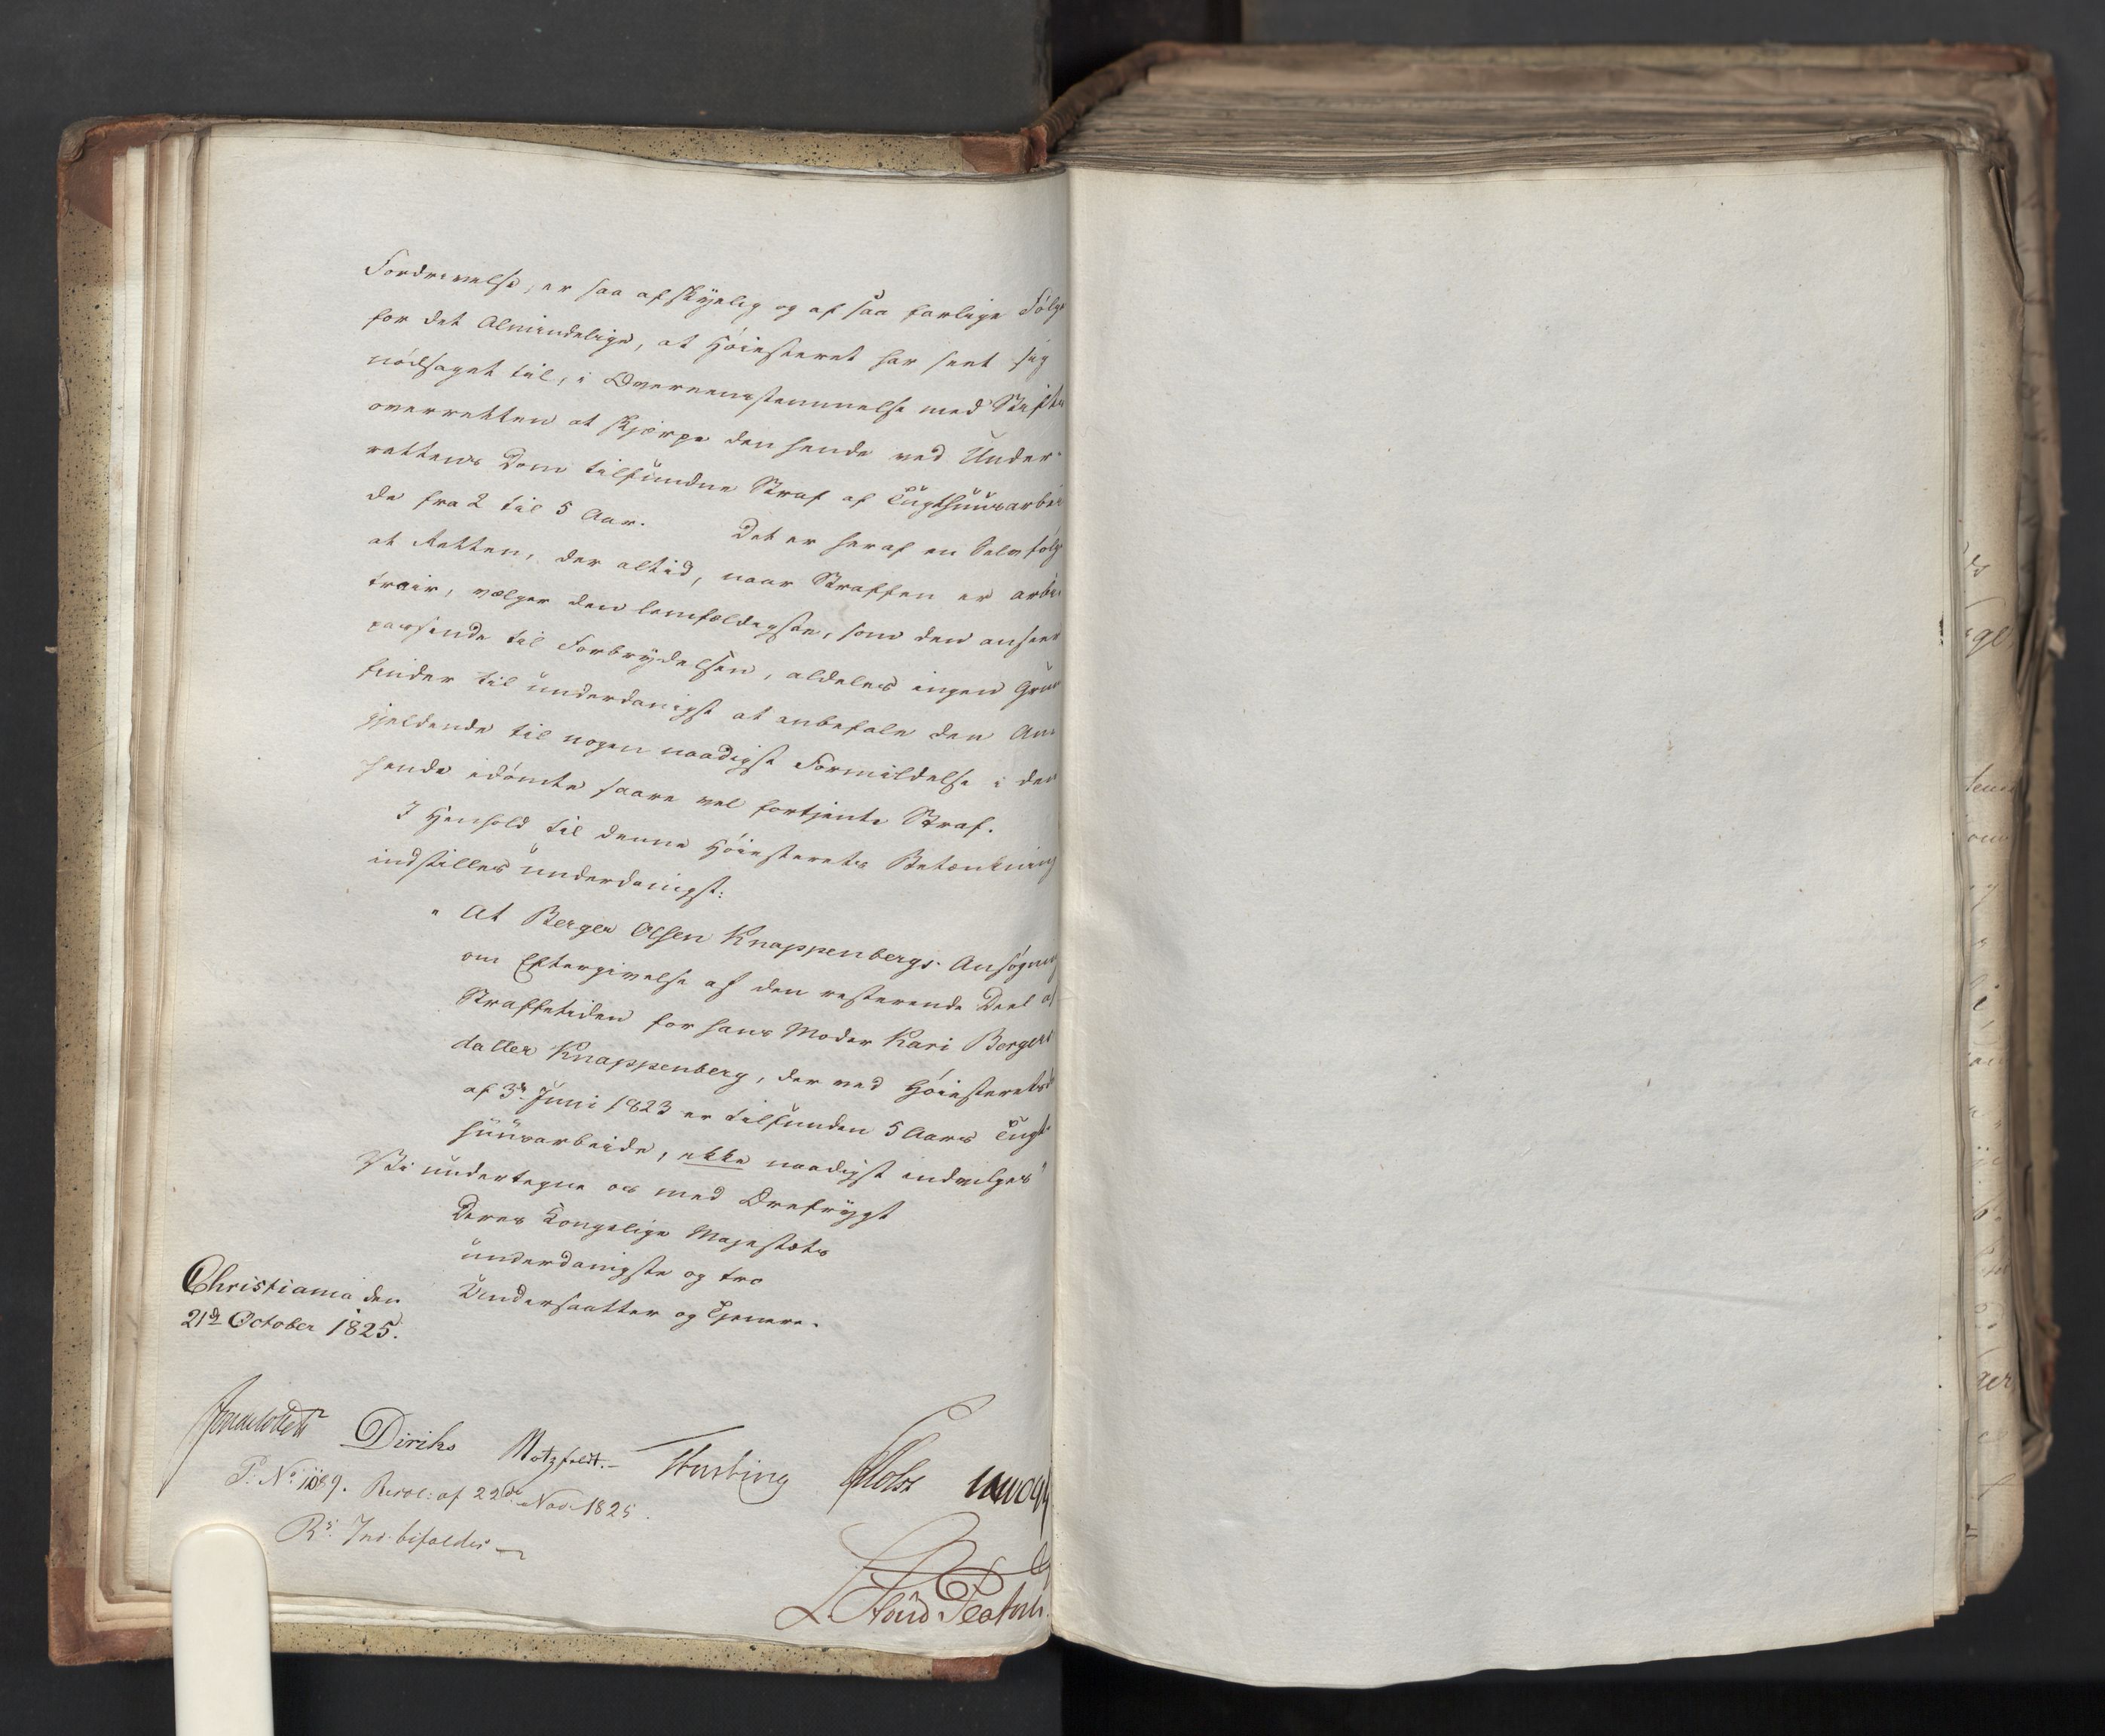 Fordrivelse, er saa afskyelig og af saa farlige Følge
for det Almindelige, at Høiesteret har seet sig
nødsaget til, i Overeensstemmelse med Stifts
overretten at skjærpe den hende ved Under-
rettens Dom tilfundne Straf af Tugthuusarbei
de fra 2 til 5 Aar. Det er heraf en Selvfølge
at Retten, der altid, naar Straffen er arbi-
trair, vælger den lemfældigste, som den anseer
passende til Forbrydelsen, aldeles ingen Grun
finder til underdanigst at anbefale den An-
gjeldende til nogen naadigst Formildelse i den
hende idømte saare vel fortjente Straf.
I Henhold til denne Høiesterets Betænkning
indstilles underdanigst:
"At Berger Olsen Knappenbergs Ansøgning
om Eftergivelse af den resterende Deel af
Straffetiden for hans Moder Kari Bergers
datter Knappenberg, der ved Høiesteretsd
af 3de Juni 1823 er tilfunden 5 Aars Tugt-
huusarbeide, ikke naadigst indvilges"
Vi undertegne os med Ærefrygt
Deres Kongelige Majestæts
underdanigste og tro
Undersaatter og Tjenere.
Christiania den
21de October 1825.
Diriks Motzfeldt.
P: No 1089. Resol: af 22de Nov 1825.
Rs: Ind. bifaldes